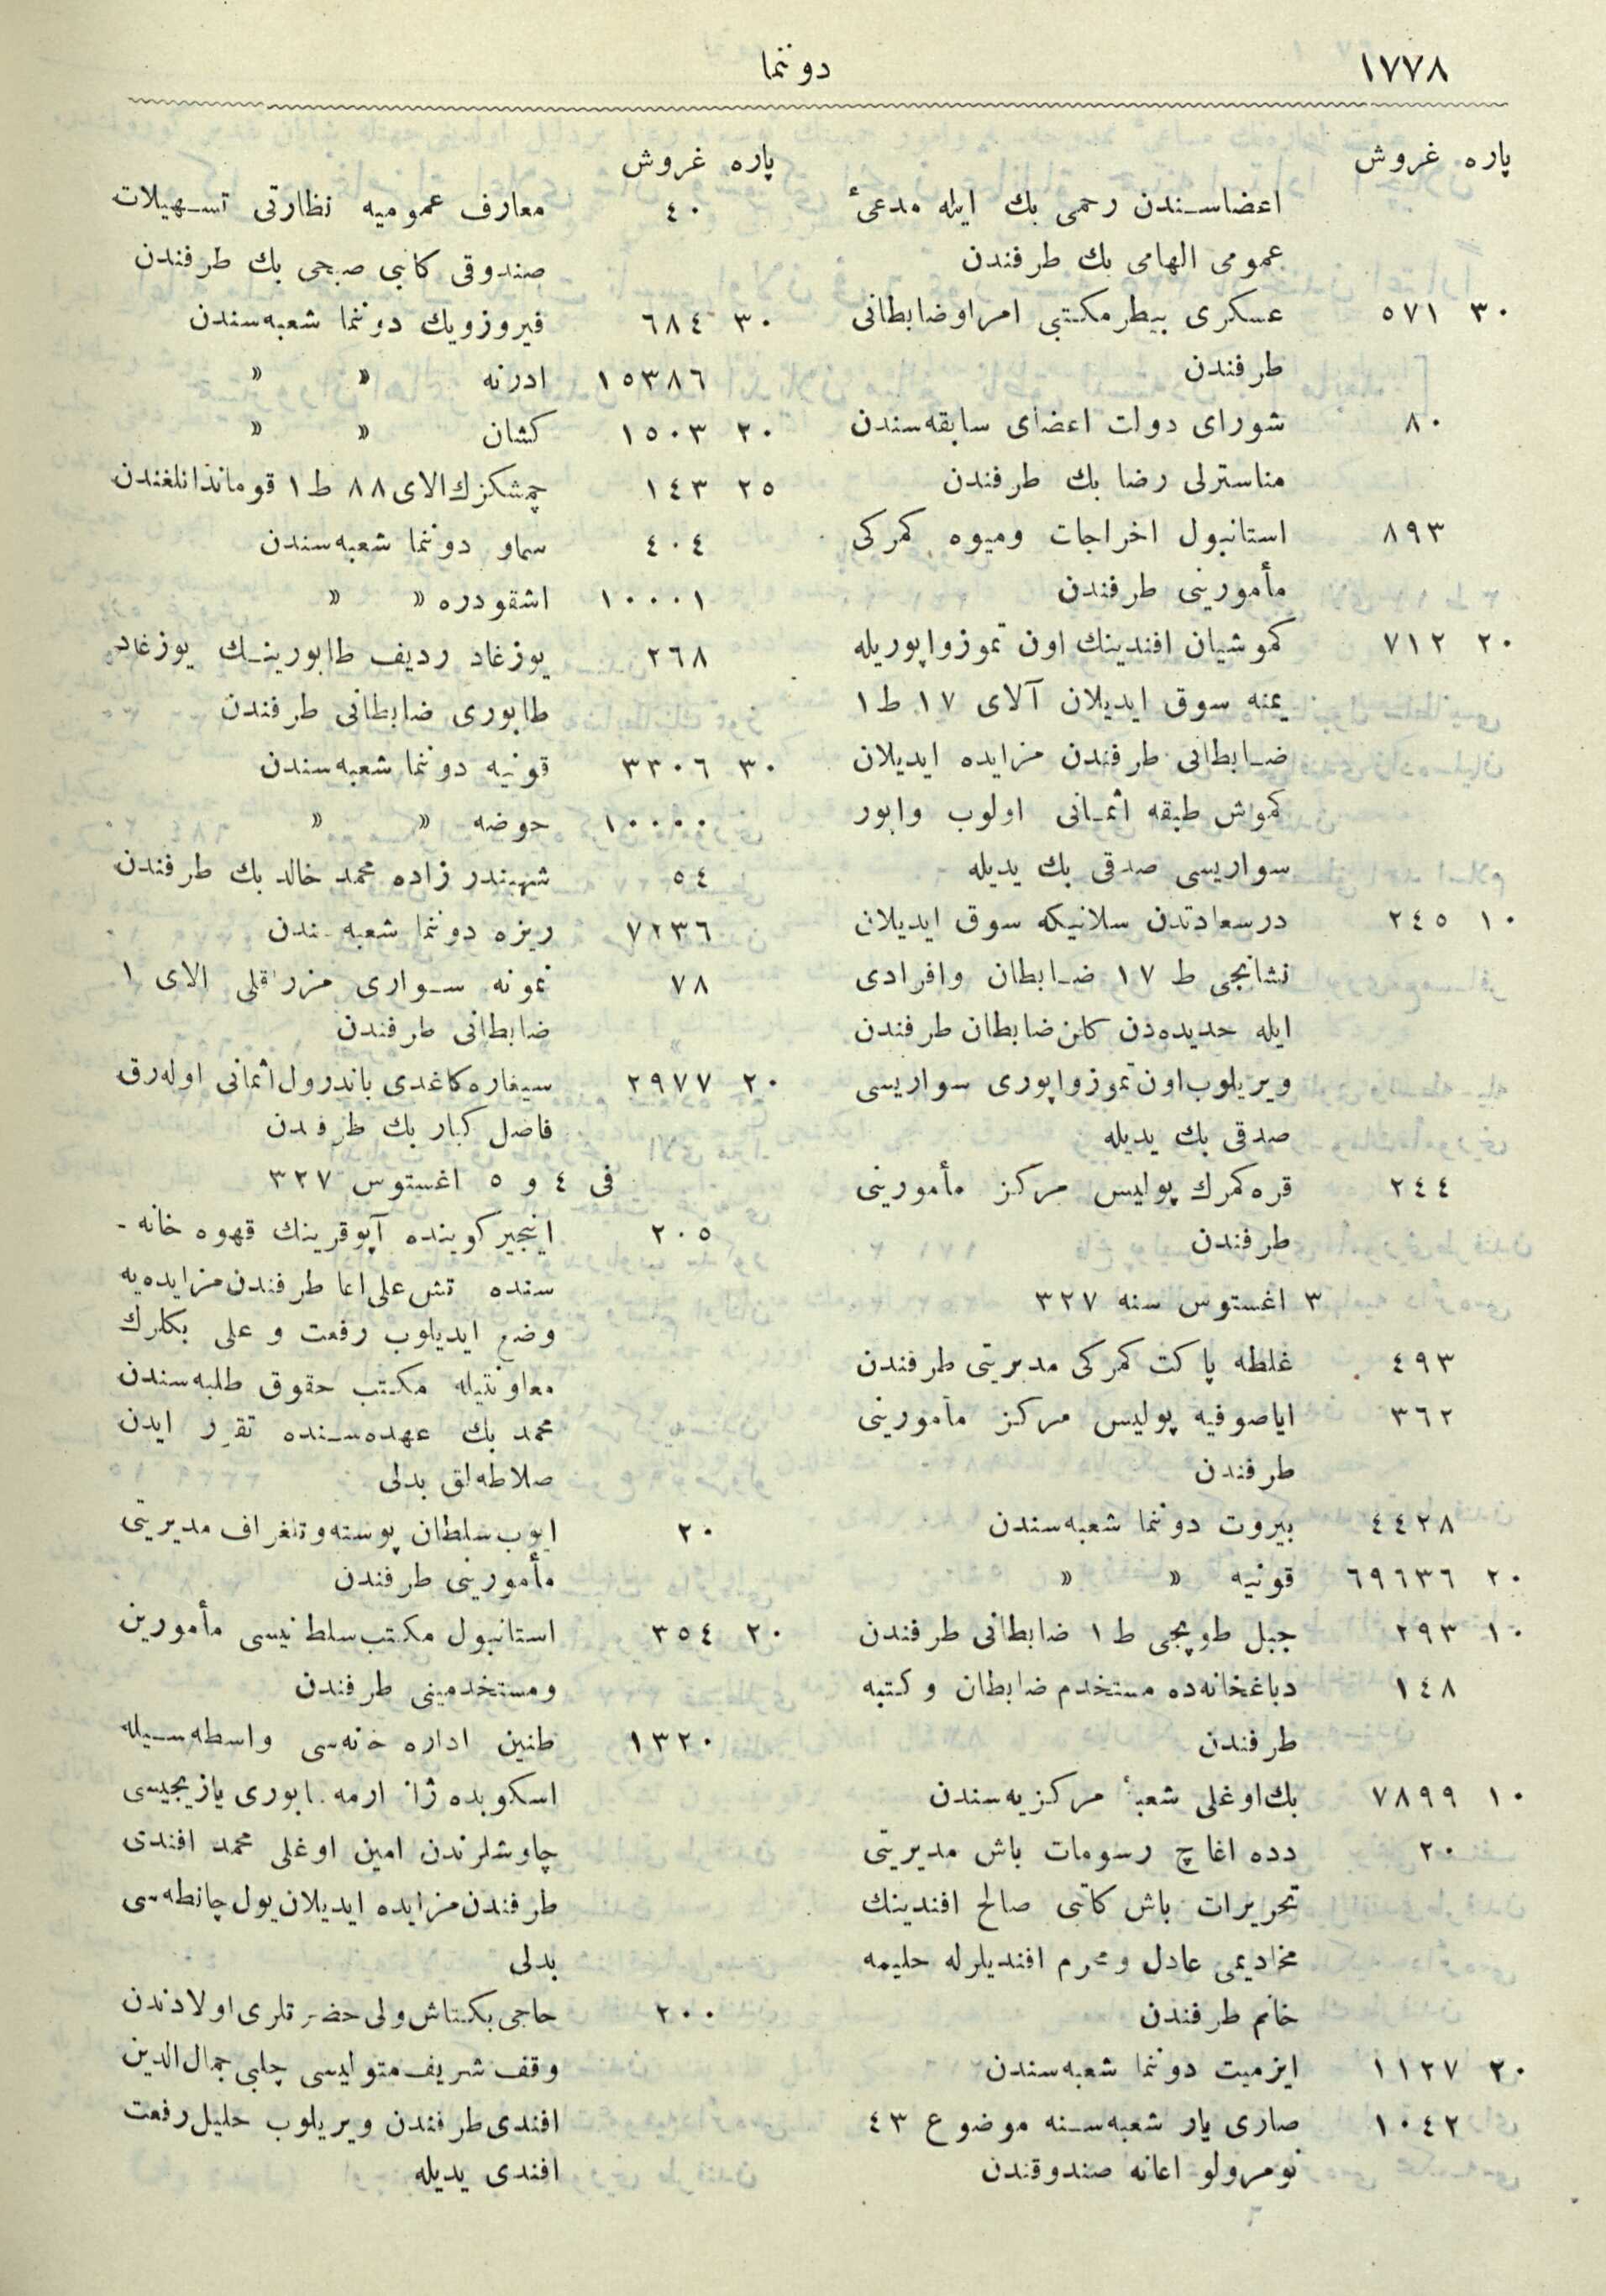 ١٧٧٨
دوننما
پاره غروش
اعضاسندن رحمی بك ایله مدعئ
عمومی الهامی بك طرفندن
٣٠ ٥٧١ عسكری بیطر مكتبی امرا وضابطانی
طرفندن
٨٠ شورای دولت اعضای سابقه‌سندن
مناسترلی رضا بك طرفندن
٨٩٣ استانبول اخراجات ومیوه كمركی
مأمورینی طرفندن
٢٠ ٧١٢ كموشیان افندینك اون تموز واپوریله
یمنه سوق ایدیلان آلای ١٧ ط ١
ضابطانی طرفندن مزایده ایدیلان
كموش طبقه اثمانی اولوب واپور
سواریسی صدقی بك یدیله
١٠ ٢٤٥ درسعادتدن سلانیكه سوق ایدیلان
نشانجی ط ١٧ ضابطان وافرادی
ایله حدیده‌دن كلن ضابطان طرفندن
ویریلوب اون تموز واپوری سواریسی
صدقی بك یدیله
٢٤٤ قره‌كمرك پولیس مركز مأمورینی
طرفندن
٣ اغستوس سنه ٣٢٧
٤٩٣ غلطه پاكت كمركی مدیریتی طرفندن
٣٦٢ ایاصوفیه پولیس مركز مأمورینی
طرفندن
٤٤٢٨ بیروت دوننما شعبه‌سندن
٢٠ ٦٩٦٣٦ قونیه » »
١٠ ٢٩٣ جبل طوپجی ط ١ ضابطانی طرفندن
١٤٨ دباغخانه‌ده مستخدم ضابطان وكتبه
طرفندن
١٠ ٧٨٩٩ بك‌اوغلی شعبهٔ مركزیه‌سندن
٢٠ دده اغاچ رسومات باش مدیریتی
تحریرات باش كاتبی صالح افندینك
مخادیمی عادل ومحرم افندیلرله حلیمه
خانم طرفندن
٢٠ ١١٢٧ ایزمیت دوننما شعبه‌سندن
١٠٤٢ صاری یار شعبه‌سنه موضوع ٤٣
نومرولو اعانه صندوقندن
پاره غروش
٤٠ معارف عمومیه نظارتی تسهیلات
صندوقی كاتبی صبحی بك طرفندن
٣٠ ٦٨٤ فیروزویك دوننما شعبه‌سندن
١٥٣٨٦ ادرنه » »
٢٠ ١٥٠٣ كشان » »
٢٥ ١٤٣ چمشكزك الای ٨٨ ط ١ قوماندانلغندن
٤٠٤ سماو دوننما شعبه‌سندن
١٠٠٠١ اشقودره » »
٢٦٨ یوزغاد ردیف طابورینك یوزغاد
طابوری ضابطانی طرفندن
٣٠ ٣٣٠٦ قونیه دوننما شعبه‌سندن
١٠٠٠٠ حوضه » »
٥٤ شهبندر زاده محمد خالد بك طرفندن
٧٢٣٦ ریزه دوننما شعبه‌سندن
٧٨ نمونه سواری مزراقلی الای ١
ضابطانی طرفندن
٢٠ ٢٩٧٧ سیغاره كاغدی باندرول اثمانی اوله‌رق
فاضل كبار بك طرفندن
فی ٤ و ٥ اغستوس ٣٢٧
٢٠٥ اینجیر كوینده آپوقرینك قهوه خانه -
سنده تش علی اغا طرفندن مزایده‌یه
وضع ایدیلوب رفعت و علی بكلرك
معاونتیله مكتب حقوق طلبه‌سندن
محمد بك عهده‌سنده تقرر ایدن
صلاطه‌لق بدلی
٢٠ ایوب سلطان پوسته وتلغراف مدیریتی
مأمورینی طرفندن
٢٠ ٣٥٤ استانبول مكتب سلطانیسی مأمورین
ومستخدمینی طرفندن
١٣٢٠ طنین اداره خانه‌سی واسطه‌سیله
اسكوبده ژاندارمه طابوری یازیجیسی
چاوشلرندن امین اوغلی محمد افندی
طرفندن مزایده ایدیلان یول چانطه‌سی
بدلی
٢٠٠ حاجی بكتاش ولی حضرتلری اولادندن
وقف شریف متولیسی چلبی جمال‌الدین
افندی طرفندن ویریلوب خلیل رفعت
افندی یدیله